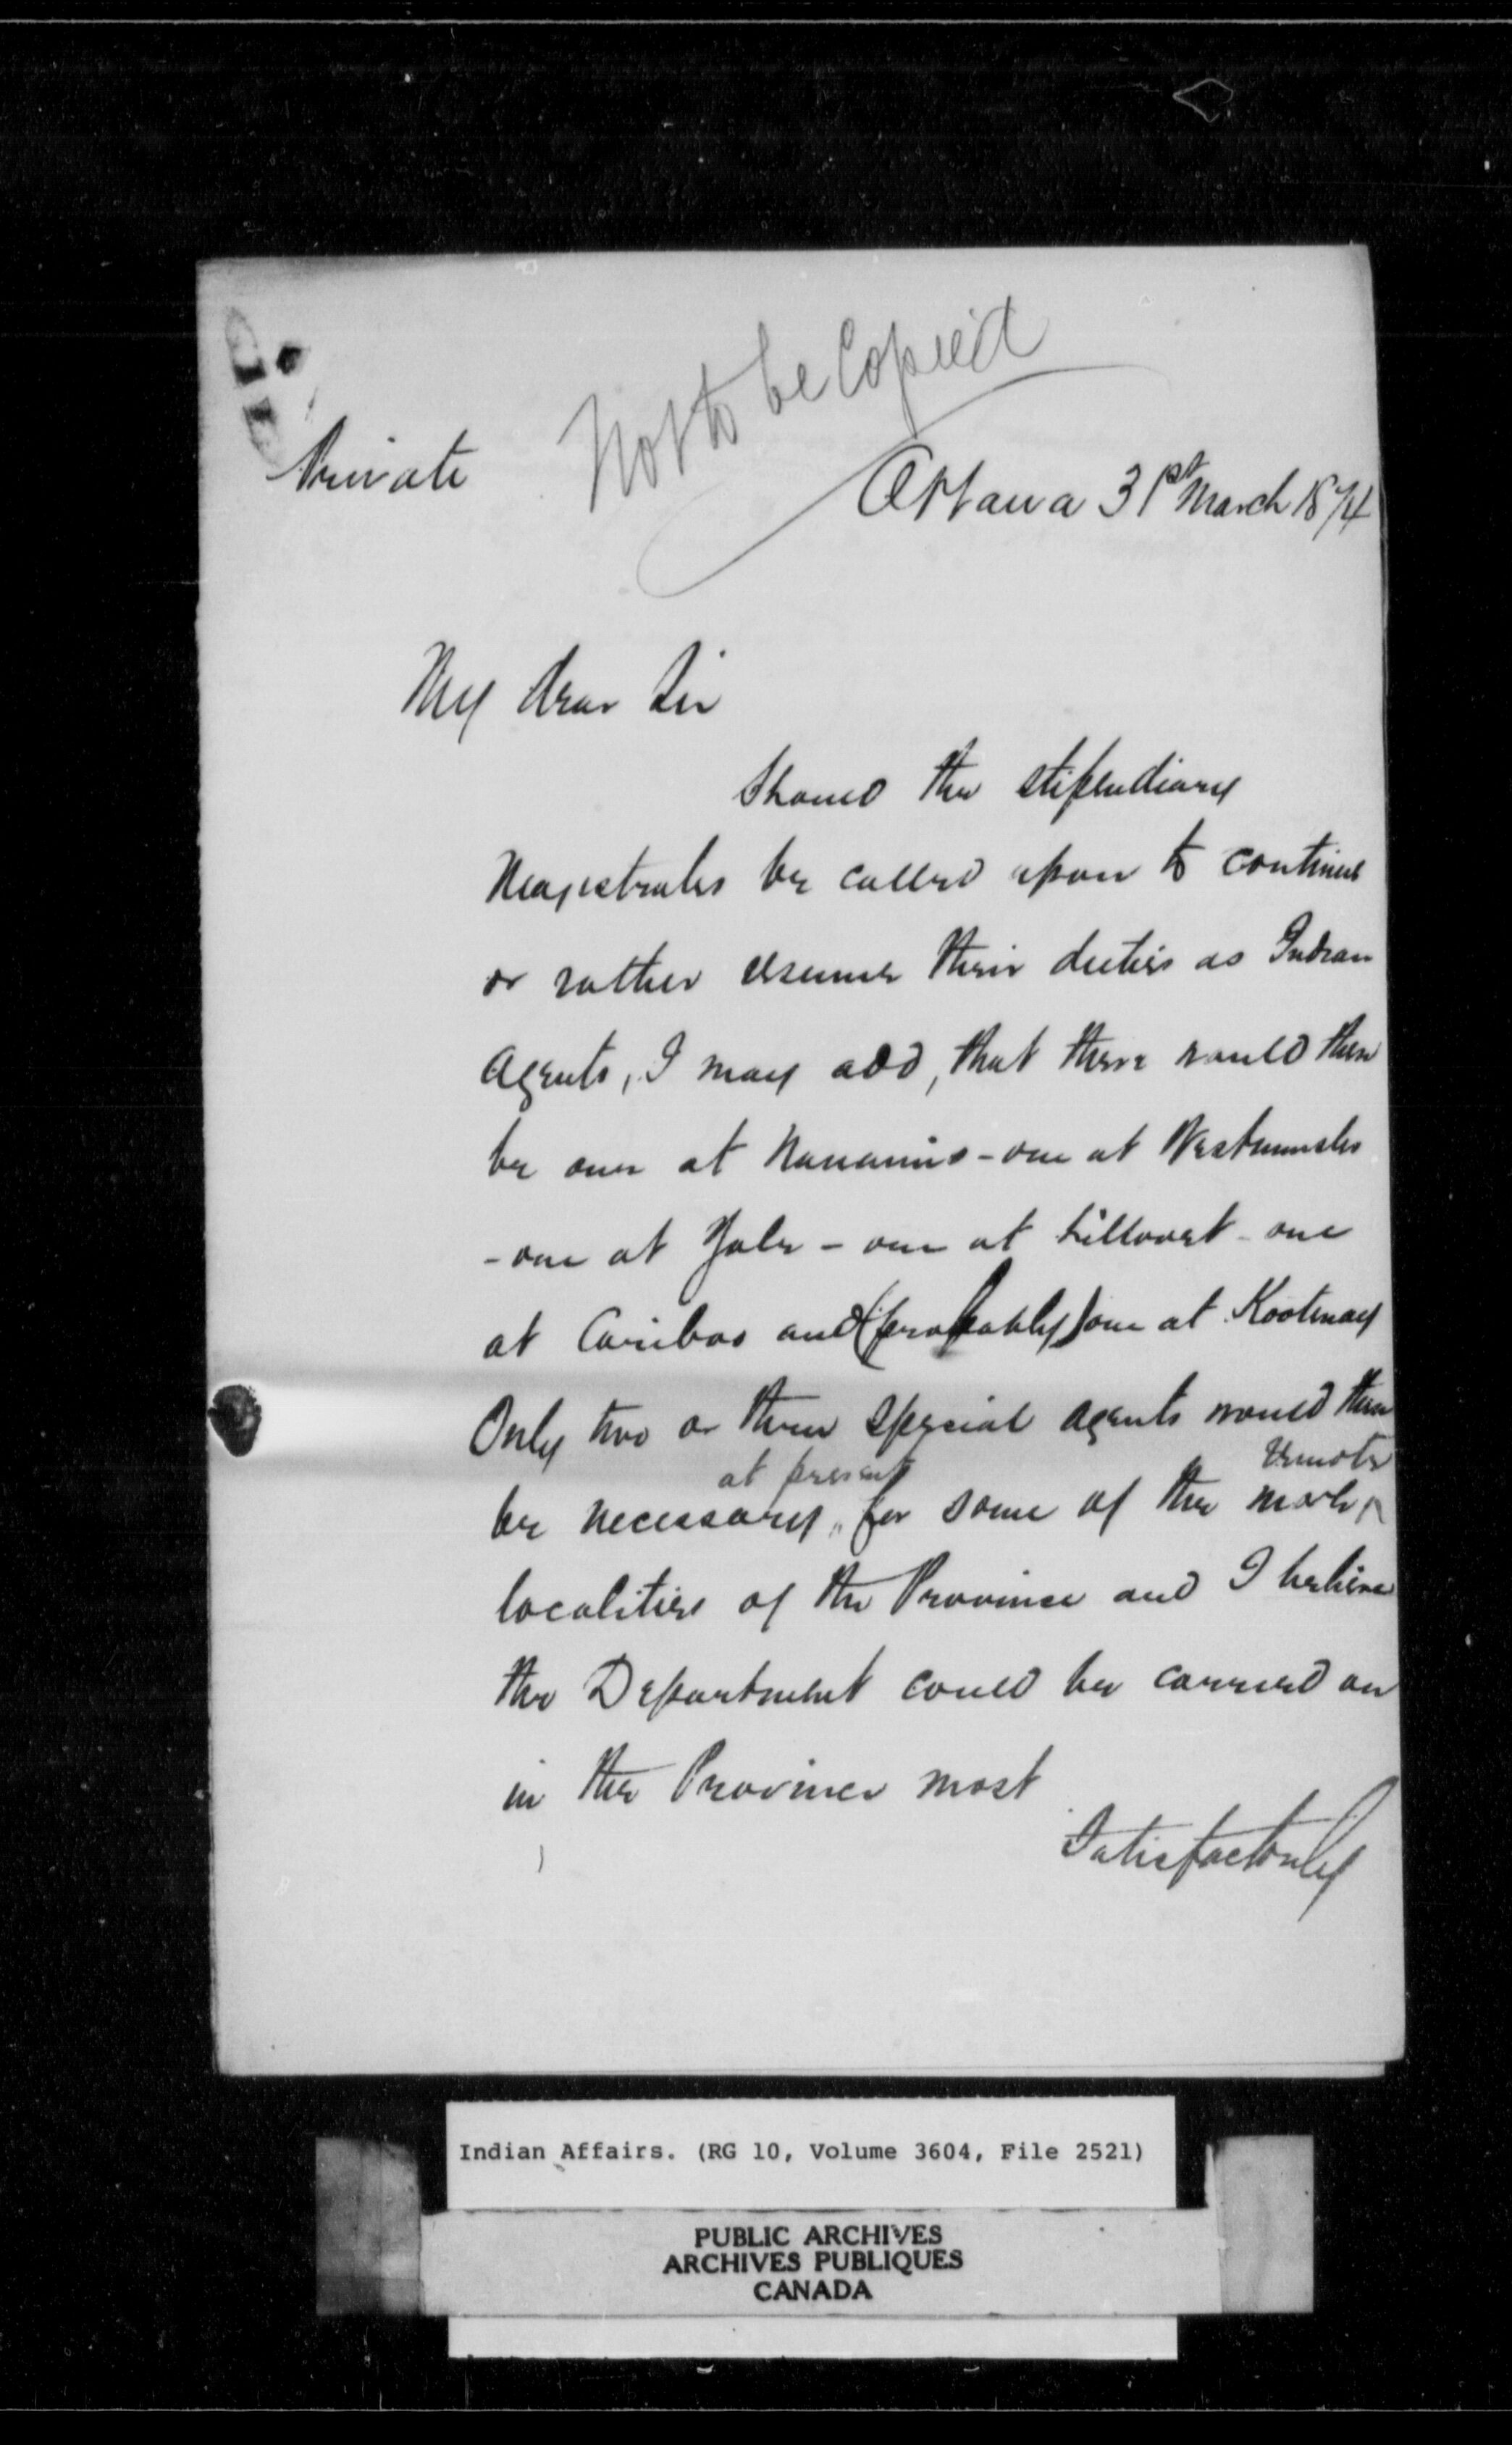 Not to be Copied
Private
Ottawa 31st March 1874
My dear Sir
Should the stipendiary
Magistrates be called upon to continue
or rather resume their duties as Indian
Agents, I may add, that there would then
be one at Nanaimo - one at Westminster
- one at Yale - one at Lillooet - one
at Cariboo and (probably) one at Kootenay
Only two or three special agents would then
at present remote
be necessary, for some of the more
localities of the Province and I believe
the Department could be carried on
in the Province most
Satisfactorily
Indian Affairs. (RG 10, Volume 3604, File 2521)
PUBLIC ARCHIVES
ARCHIVES PUBLIQUES
CANADA